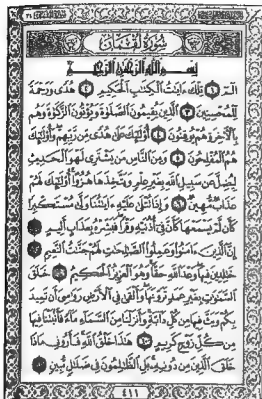 سُورَةُ لُقْمَانَ
بِسْمِ اللَّهِ الرَّحْمَٰنِ الرَّحِيمِ
الٓمٓ ١ تِلْكَ ءَايَٰتُ الْكِتَٰبِ الْحَكِيمِ ٢ هُدًى وَرَحْمَةً
لِّلْمُحْسِنِينَ ٣ الَّذِينَ يُقِيمُونَ الصَّلَوٰةَ وَيُؤْتُونَ الزَّكَوٰةَ وَهُم
بِالْءَاخِرَةِ هُمْ يُوقِنُونَ ٤ أُو۟لَٰٓئِكَ عَلَىٰ هُدًى مِّن رَّبِّهِمْ وَأُو۟لَٰٓئِكَ
هُمُ الْمُفْلِحُونَ ٥ وَمِنَ النَّاسِ مَن يَشْتَرِى لَهْوَ الْحَدِيثِ
لِيُضِلَّ عَن سَبِيلِ اللَّهِ بِغَيْرِ عِلْمٍ وَيَتَّخِذَهَا هُزُوًا أُو۟لَٰٓئِكَ لَهُمْ
عَذَابٌ مُّهِينٌ ٦ وَإِذَا تُتْلَىٰ عَلَيْهِ ءَايَٰتُنَا وَلَّىٰ مُسْتَكْبِرًا
كَأَن لَّمْ يَسْمَعْهَا كَأَنَّ فِىٓ أُذُنَيْهِ وَقْرًا فَبَشِّرْهُ بِعَذَابٍ أَلِيمٍ ٧
إِنَّ الَّذِينَ ءَامَنُوا۟ وَعَمِلُوا۟ الصَّٰلِحَٰتِ لَهُمْ جَنَّٰتُ النَّعِيمِ ٨
خَٰلِدِينَ فِيهَا وَعْدَ اللَّهِ حَقًّا وَهُوَ الْعَزِيزُ الْحَكِيمُ ٩ خَلَقَ
السَّمَٰوَٰتِ بِغَيْرِ عَمَدٍ تَرَوْنَهَا وَأَلْقَىٰ فِى الْأَرْضِ رَوَٰسِىَ أَن تَمِيدَ
بِكُمْ وَبَثَّ فِيهَا مِن كُلِّ دَآبَّةٍ وَأَنزَلْنَا مِنَ السَّمَآءِ مَآءً فَأَنۢبَتْنَا فِيهَا
مِن كُلِّ زَوْجٍ كَرِيمٍ ١٠ هَٰذَا خَلْقُ اللَّهِ فَأَرُونِى مَاذَا
خَلَقَ الَّذِينَ مِن دُونِهِۦ بَلِ الظَّٰلِمُونَ فِى ضَلَٰلٍ مُّبِينٍ ١١
٤١١